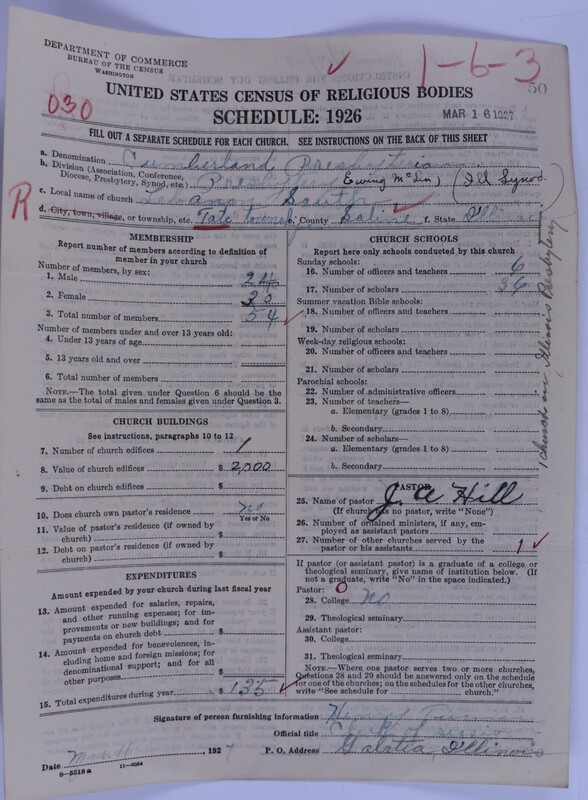 DEPARTMENT OF COMMERCE
BUREAU OF THE CENSUS
WASHINGTON
1-6-3
50
030
UNITED STATES CENSUS OF RELIGIOUS BODIES
SCHEDULE: 1926
MAR 16 1927
FILL OUT A SEPARATE SCHEDULE FOR EACH CHURCH. SEE INSTRUCTIONS ON THE BACK OF THIS SHEET
a. Denomination Cumberland Presbyterian
b. Division (Association, Conference, Diocese, Presbytery, Synod, etc.) Presbytery Ewing McLin) (Ill Synod
R
c. Local name of church Lebanon South
d. City, town, village, or township, etc. Tate e. County Saline f. State Illinois
MEMBERSHIP
Report number of members according to definition of member in your church
Number of members, by sex:
1. Male 24
2. Female 30
3. Total number of members 54
Number of members under and over 13 years old:
4. Under 13 years of age
5. 13 years old and over
6. Total number of members
NOTE.—The total given under Question 6 should be the same as the total of males and females given under Question 3.
CHURCH BUILDINGS
See instructions, paragraphs 10 to 12
7. Number of church edifices 1
8. Value of church edifices $ 2,000
9. Debt on church edifices $
10. Does church own pastor's residence? no
Yes or No
11. Value of pastor's residence (if owned by church) $
12. Debt on pastor's residence (if owned by church) $
EXPENDITURES
Amount expended by your church during last fiscal year
13. Amount expended for salaries, repairs, and other running expenses; for improvements or new buildings; and for payments on church debt $
14. Amount expended for benevolences, including home and foreign missions; for denominational support; and for all other purposes $
15. Total expenditures during year $ 135
CHURCH SCHOOLS
Report here only schools conducted by this church
Sunday schools:
16. Number of officers and teachers 6
17. Number of scholars 36
Summer vacation Bible schools:
18. Number of officers and teachers
19. Number of scholars
Week-day religious schools:
20. Number of officers and teachers
21. Number of scholars
Parochial schools:
22. Number of administrative officers
23. Number of teachers—
a. Elementary (grades 1 to 8)
b. Secondary
24. Number of scholars—
a. Elementary (grades 1 to 8)
b. Secondary
1 church in Illinois Presbytery
PASTOR
25. Name of pastor J. A Hill
(If church has no pastor, write "None")
26. Number of ordained ministers, if any, employed as assistant pastors
27. Number of other churches served by the pastor or his assistants 1
If pastor (or assistant pastor) is a graduate of a college or theological seminary, give name of institution below. (If not a graduate, write "No" in the space indicated.)
Pastor: O
28. College no
29. Theological seminary
Assistant pastor:
30. College
31. Theological seminary
NOTE.—Where one pastor serves two or more churches, Questions 28 and 29 should be answered only on the schedule for one of the churches; on the schedules for the other churches, write "See schedule for church."
Signature of person furnishing information
Official title
Date 1927
P. O. Address Galatia, Illinois
8-5518a 11-9084